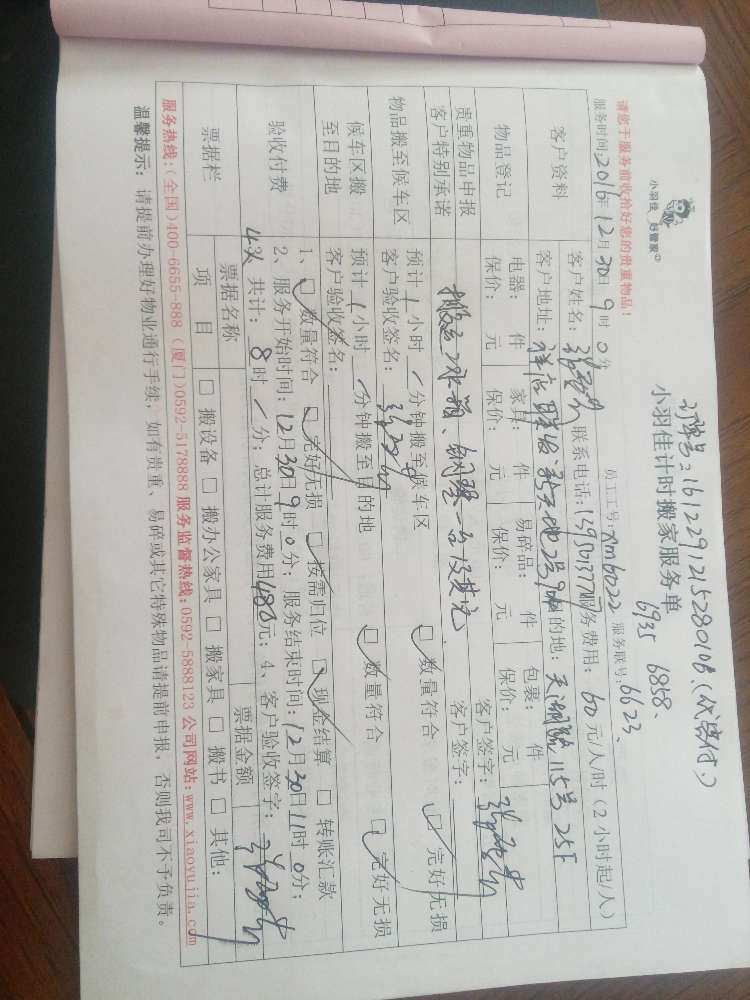 订单号:1612291215280108.(代客付.)
小羽佳 好管家
小羽佳计时搬家服务单
6935 6858.
请您于服务前收拾好您的贵重物品!
员工工号:xm6022 服务联号:6623.
服务时间:2016年12月30日9时0分
客户资料
客户姓名: 联系电话: 服务费用:60元/人/时(2小时起/人)
客户地址: 的地:天湖路115号25F
物品登记
电器: 件 家具: 件 易碎品: 件 包裹: 件
保价: 元 保价: 元 保价: 元 保价: 元
客户签字:
贵重物品申报
客户特别承诺
客户签字:
物品搬至候车区
预计1小时/分钟搬至候车区 □数量符合 □完好无损
客户验收签名:
候车区搬
至目的地
预计1小时/分钟搬至目的地 □数量符合 □完好无损
客户验收签名:
验收付费
1、□数量符合 □完好无损 □按需归位 □现金结算 □转账汇款
2、服务开始时间:12月30日9时0分;服务结束时间:12月30日11时0分;
4人 共计:8时/分;总计服务费用480元;4、客户验收签字:
票据栏
票据名称 票据金额
项目 □搬设备 □搬办公家具 □搬家具 □搬书 □其他:
服务热线:(全国)400-6655-888 (厦门)0592-5178888 服务监督热线:0592-5888123 公司网站:www.xiaoyujia.com
温馨提示: 请提前办理好物业通行手续,如有贵重、易碎或其它特殊物品请提前申报,否则我司不予负责。